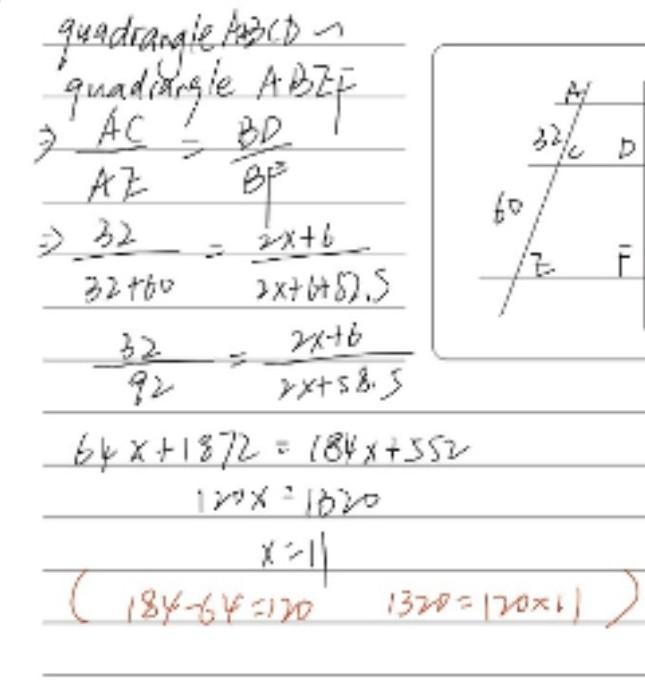 quadrangle ABCD ∽
quadrangle ABEF
⇒ AC/AE = BD/BF
⇒ 32/(32+60) = (2x+6)/(2x+6+52.5)
32/92 = (2x+6)/(2x+58.5)
64x+1872 = 184x+552
120x = 1320
x = 11
( 184-64=120 1320=120×11 )
A
32 C D
60
E F